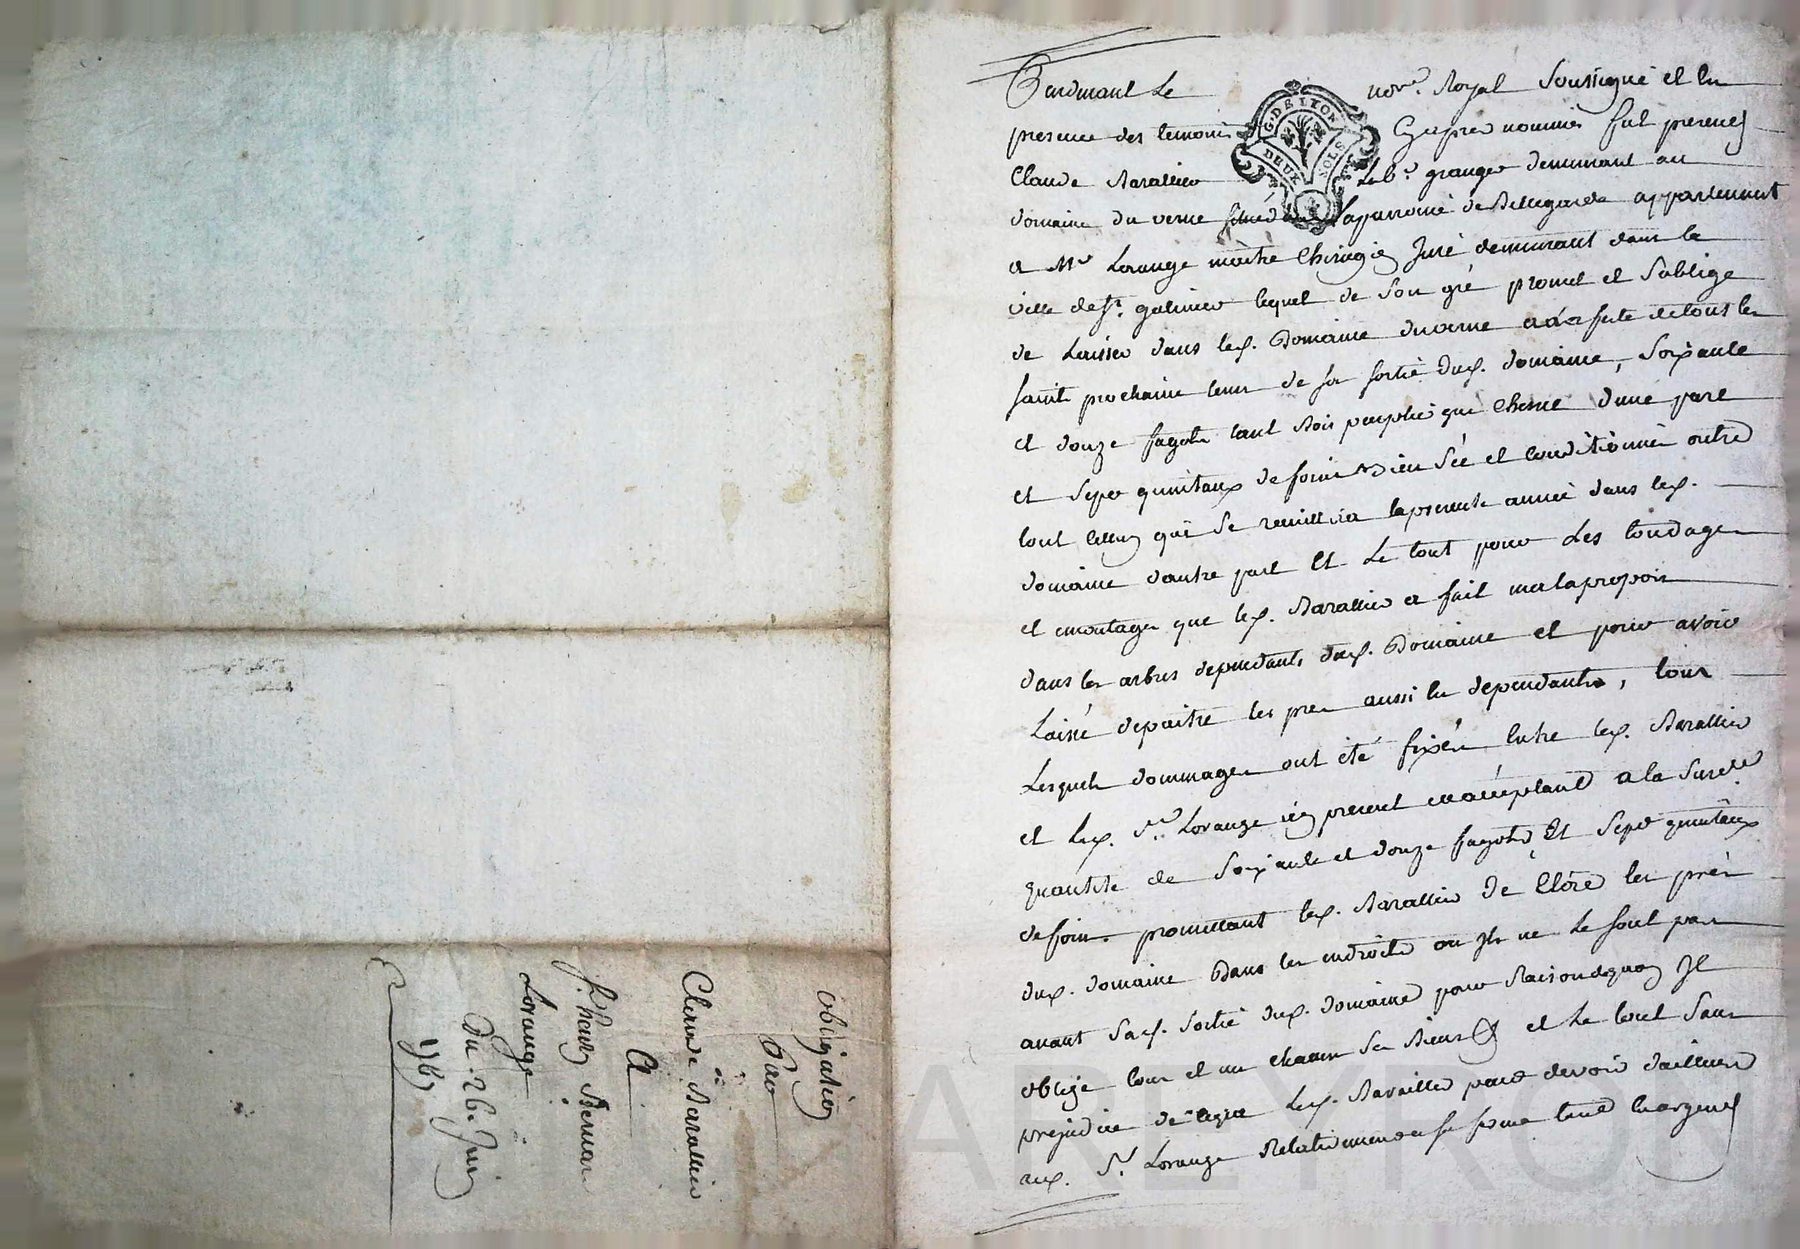 Pardevant Le no.re Royal Soussigné et En
presence des temoins Cy apres nommés fut present
Claude Barallier Lab.r granger demeurant au
domaine du verne situé dans La parroisse de Bellegarde appartennent
a M.e Lorange maitre Chirurgien Juré demeurant dans la
ville de St. galmier lequel de Son gré promet et Soblige
de Laisser dans led. Domaine du verne a la feste de tous les
saints prochaine tems de sa sortie dud. domaine, Soixante
et douze fagots tant Bois peuplié que Chesne d'une part
et Sept quintaux de foin Bien Séc et conditionné outre
tout celluy qui Se receuillira la presente année dans led.
domaine dautre part Et Le tout pour Les tondages
et emontages que led. Barallier a fait mal a propos
dans les arbres dependants dud. Domaine et pour avoir
Laissé depaitre les prés aussi En dependants, tous
Lesquels dommages ont été fixés Entre led. Barallier
et Led. S.r Lorange icy present et acceptant a la Susd.e
quantité de Soixante et douze fagots Et Sept quintaux
de foin. promettant led. Barallier De Clore les prés
dud. domaine Dans les endroits ou ils ne Le sont pas
avant Sad. Sortie dud. domaine pour Raison de quoy Il
oblige tous et un chacun Ses Biens & et Le tout Sans
prejudice de ce que Led. Barallier peut devoir d'ailleurs
aud. S.r Lorange Relativement a sa ferme tant En argent
obligation
Par
Claude Barallier
A
S.r
Lorange
Du 26. Juin
G. DE LYON
DEUX SOLS
ARLYRO